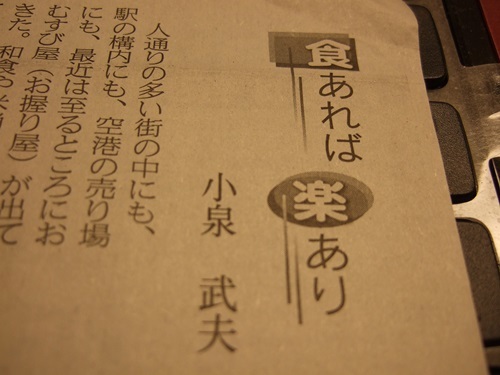 食あれば楽あり
小泉 武夫
人通りの多い街の中にも、
駅の構内にも、空港の売り場
にも、最近は至るところにお
むすび屋（お握り屋）が出て
きた。和食や